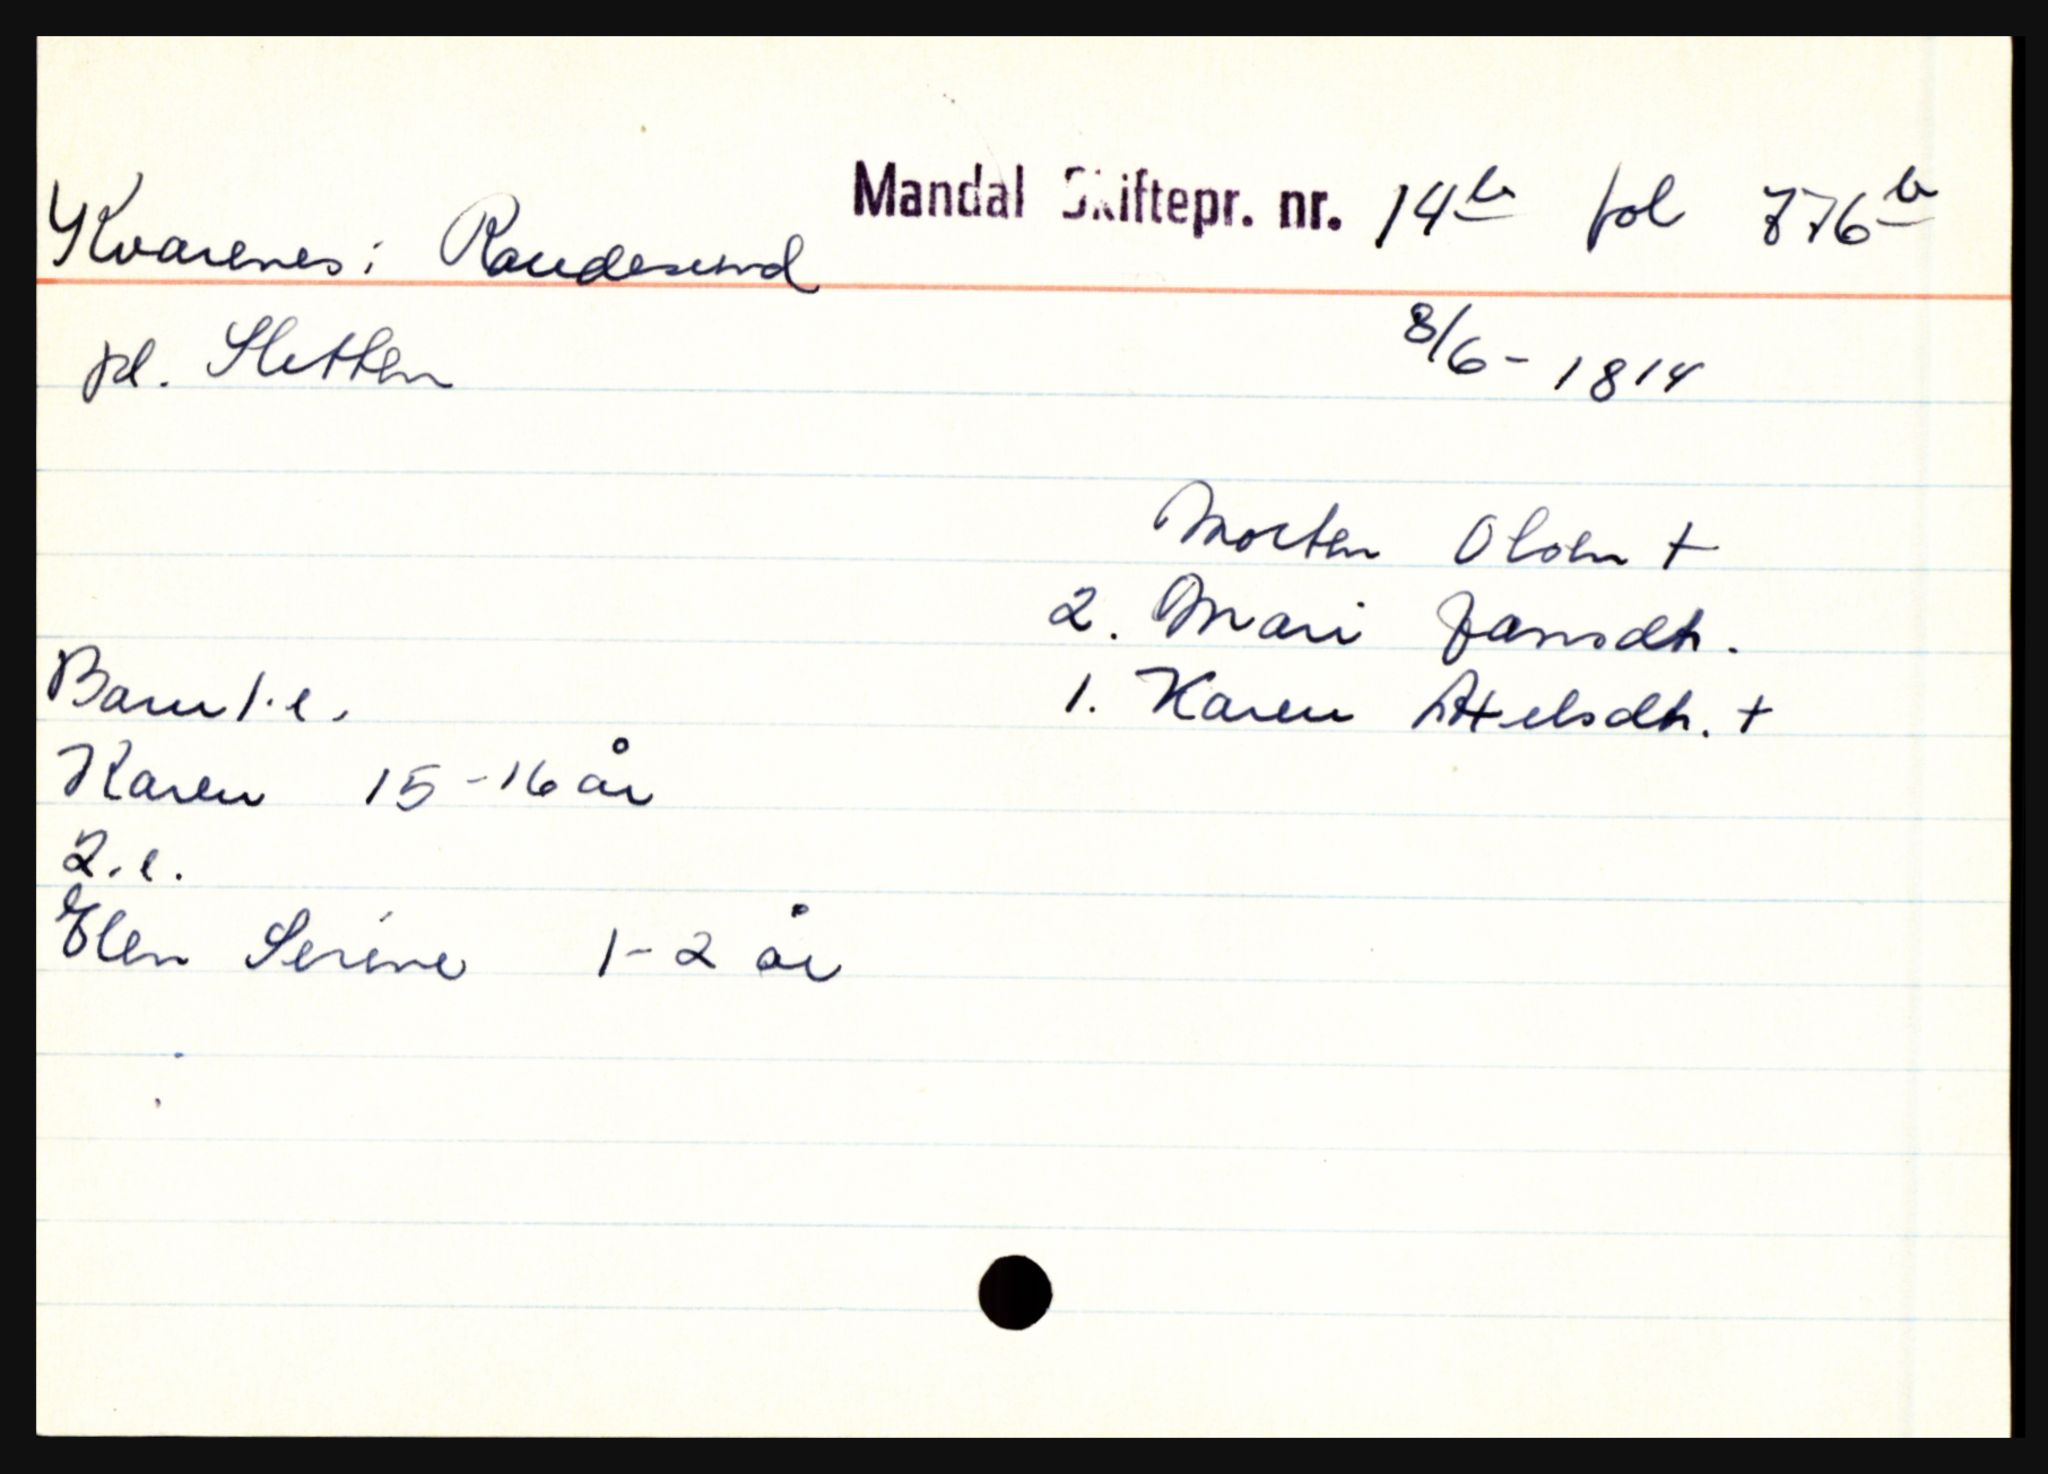 Mandal Skiftepr. nr. 14b fol 776b
Kvarenes i Randesund
pl. Sletten 8/6-1814
Morten Olsen +
2. Mari Jansdtr.
Barn 1.e. 1. Karen Axelsdtr. +
Karen 15-16 år
2.e.
Elen Serine 1-2 år